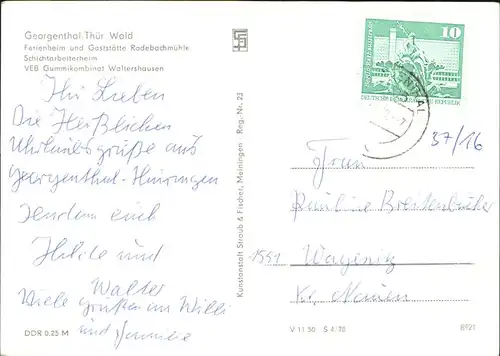 Georgenthal-Thür Wald
Ferienheim und Gaststätte Rodebachmühle
Schichtarbeiterheim
VEB Gummikombinat Waltershausen
Ihr Lieben
Die Herzlichen
Urlaubsgrüße aus
Georgenthal-Thüringen
senden euch
und
Walter
Viele grüßen an Willi
und
DDR 0.25 M
Kunstanstalt Straub & Fischer, Meiningen Reg.-Nr. 23
10
DEUTSCHE DEMOKRATISCHE REPUBLIK
37/16
Frau
Pauline
1551 Wagenitz
Kr. Nauen
V 11 50 S 4/70
8921